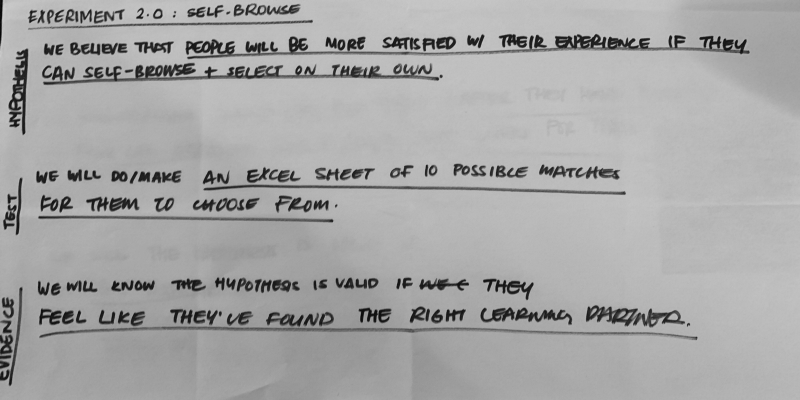 EXPERIMENT 2.0: SELF-BROWSE
HYPOTHESIS
WE BELIEVE THAT PEOPLE WILL BE MORE SATISFIED W/ THEIR EXPERIENCE IF THEY
CAN SELF-BROWSE + SELECT ON THEIR OWN.
TEST
WE WILL DO/MAKE AN EXCEL SHEET OF 10 POSSIBLE MATCHES
FOR THEM TO CHOOSE FROM.
EVIDENCE
WE WILL KNOW THE HYPOTHESIS IS VALID IF THEY
FEEL LIKE THEY'VE FOUND THE RIGHT LEARNING PARTNER.